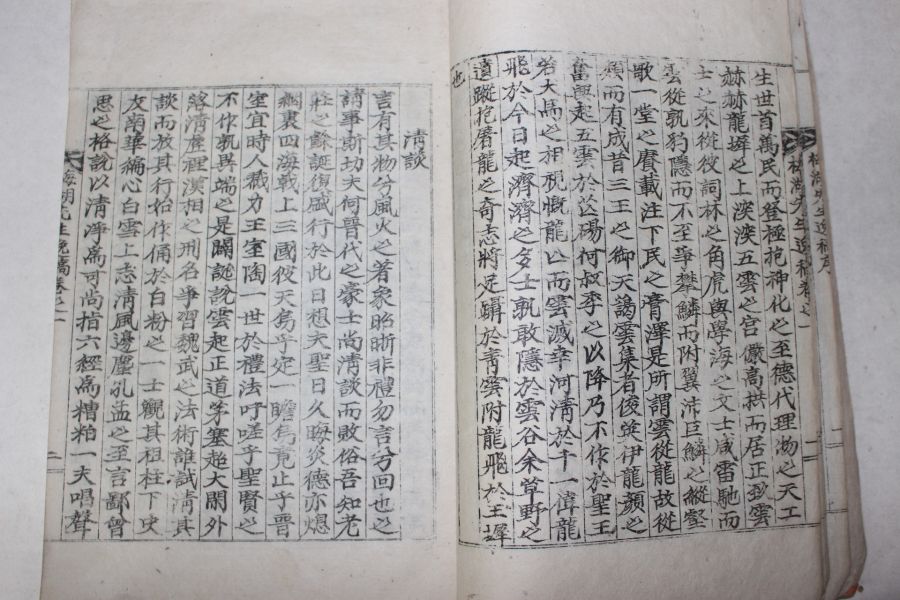 生世首萬民而登極抱神化之至德代理物之天工
赫赫龍墀之上渙渙五雲之宮儼高拱而居正致雲
士之來從彼詞林之角虎與學海之文士咸雷馳而
雲從孰豹隱而不至爭攀鱗而附翼沛巨鱗之縱壑
歌一堂之賡載注下民之膏澤是所謂雲從龍故從
類而有成昔三王之御天藹雲集者俊英伊龍顏之
奮興起五雲於芒碭何叔季之以降乃不作於聖王
若大馬之相視慨龍亡而雲滅幸河淸於千一偉龍
飛於今日起濟濟之多士孰敢隱於雲谷余草野之
遺蹤抱屠龍之奇志將足躡於靑雲附龍飛於玉墀
也
淸談
言有其物兮風火之著象昭晰非禮勿言兮回也之
請事斯切夫何晋代之豪士尚淸談而敗俗吾知老
莊之餘誕復盛行於此日想天聖日久晦炎德亦熄
綱裏四海戰上三國彼天烏乎定一瞻烏竟止乎晋
室宜時人戮力王室陶一世於禮法吁嗟乎聖賢之
不作孰異端之是闢誕說雲起正道茅塞超大閑外
落淸塵裡漢相之刑名爭習魏武之法術誰試淸其
談而放其行始作俑於白粉之一士觀其祖柱下史
友南華編心白雲上志淸風邊塵孔孟之至言鄙曾
思之格說以淸淨爲可尚指六經爲糟粕一夫唱聲